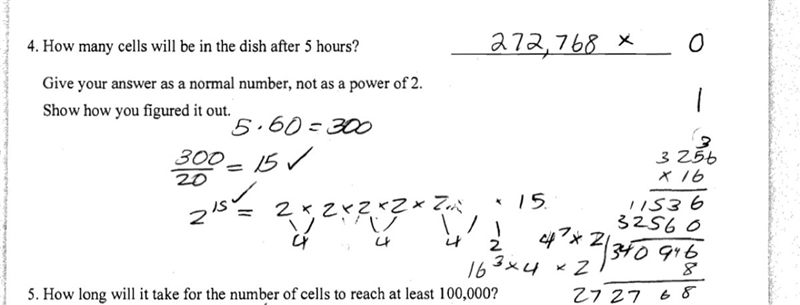 4. How many cells will be in the dish after 5 hours? 272,768 × 0
Give your answer as a normal number, not as a power of 2.
1
Show how you figured it out.
5 · 60 = 300
300/20 = 15 ✓
3
3256
× 16
2^15 ✓ = 2 × 2 × 2 × 2 × 2 × 2... × 15
11536
32560
4 4 4 2 4^7 × 2
340946
16^3 × 4 × 2
8
272768
5. How long will it take for the number of cells to reach at least 100,000?